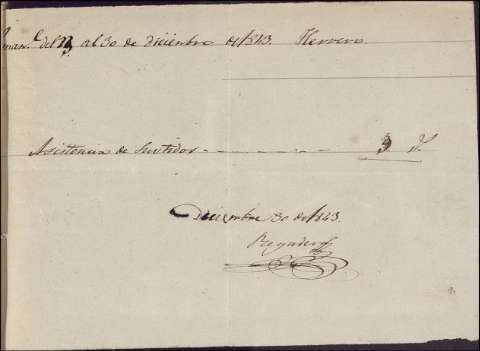 Seman.ª del 23 al 30 de diciembre de 1843. Herrero.
Asistencia de Surtidos 3 J.
Diciembre 30 de 1843.
Regadera